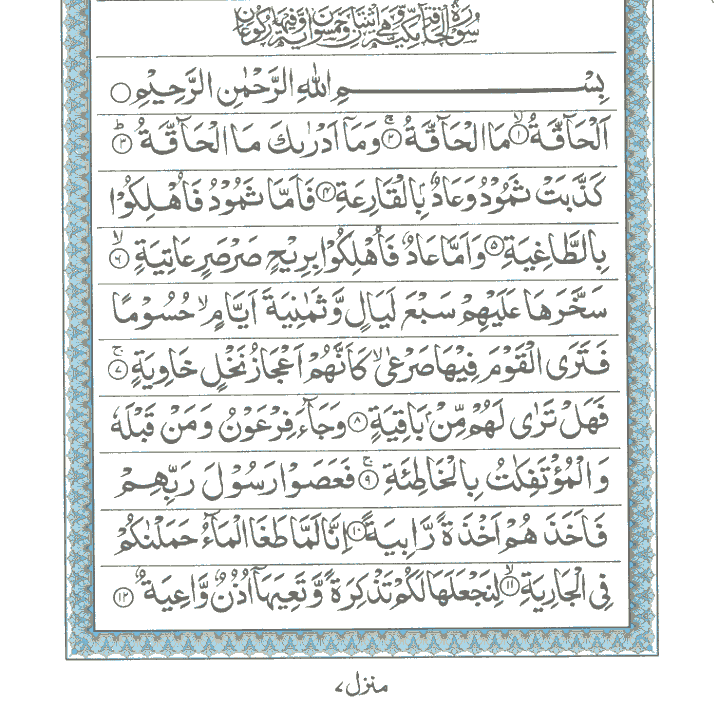 سُوْرَةُ الْحَاقَّةِ مَكِّيَّةٌ وَّهِيَ اثْنَتَانِ وَخَمْسُوْنَ اٰيَةً وَّفِيْهَا رُكُوْعَانِ
بِسْمِ اللّٰهِ الرَّحْمٰنِ الرَّحِيْمِ ○
اَلْحَآقَّةُ ۙ﴿۱﴾ مَا الْحَآقَّةُ ۚ﴿۲﴾ وَمَآ اَدْرٰىكَ مَا الْحَآقَّةُ ؕ﴿۳﴾
كَذَّبَتْ ثَمُوْدُ وَعَادٌۢ بِالْقَارِعَةِ ﴿۴﴾ فَاَمَّا ثَمُوْدُ فَاُهْلِكُوْا
بِالطَّاغِيَةِ ﴿۵﴾ وَاَمَّا عَادٌ فَاُهْلِكُوْا بِرِيْحٍ صَرْصَرٍ عَاتِيَةٍ ۙ﴿۶﴾
سَخَّرَهَا عَلَيْهِمْ سَبْعَ لَيَالٍ وَّثَمٰنِيَةَ اَيَّامٍ ۙ حُسُوْمًا
فَتَرَى الْقَوْمَ فِيْهَا صَرْعٰى ۙ كَاَنَّهُمْ اَعْجَازُ نَخْلٍ خَاوِيَةٍ ۚ﴿۷﴾
فَهَلْ تَرٰى لَهُمْ مِّنْۢ بَاقِيَةٍ ﴿۸﴾ وَجَآءَ فِرْعَوْنُ وَمَنْ قَبْلَهٗ
وَالْمُؤْتَفِكٰتُ بِالْخَاطِئَةِ ۚ﴿۹﴾ فَعَصَوْا رَسُوْلَ رَبِّهِمْ
فَاَخَذَهُمْ اَخْذَةً رَّابِيَةً ﴿۱۰﴾ اِنَّا لَمَّا طَغَا الْمَآءُ حَمَلْنٰكُمْ
فِى الْجَارِيَةِ ۙ﴿۱۱﴾ لِنَجْعَلَهَا لَكُمْ تَذْكِرَةً وَّتَعِيَهَآ اُذُنٌ وَّاعِيَةٌ ﴿۱۲﴾
منزل۷